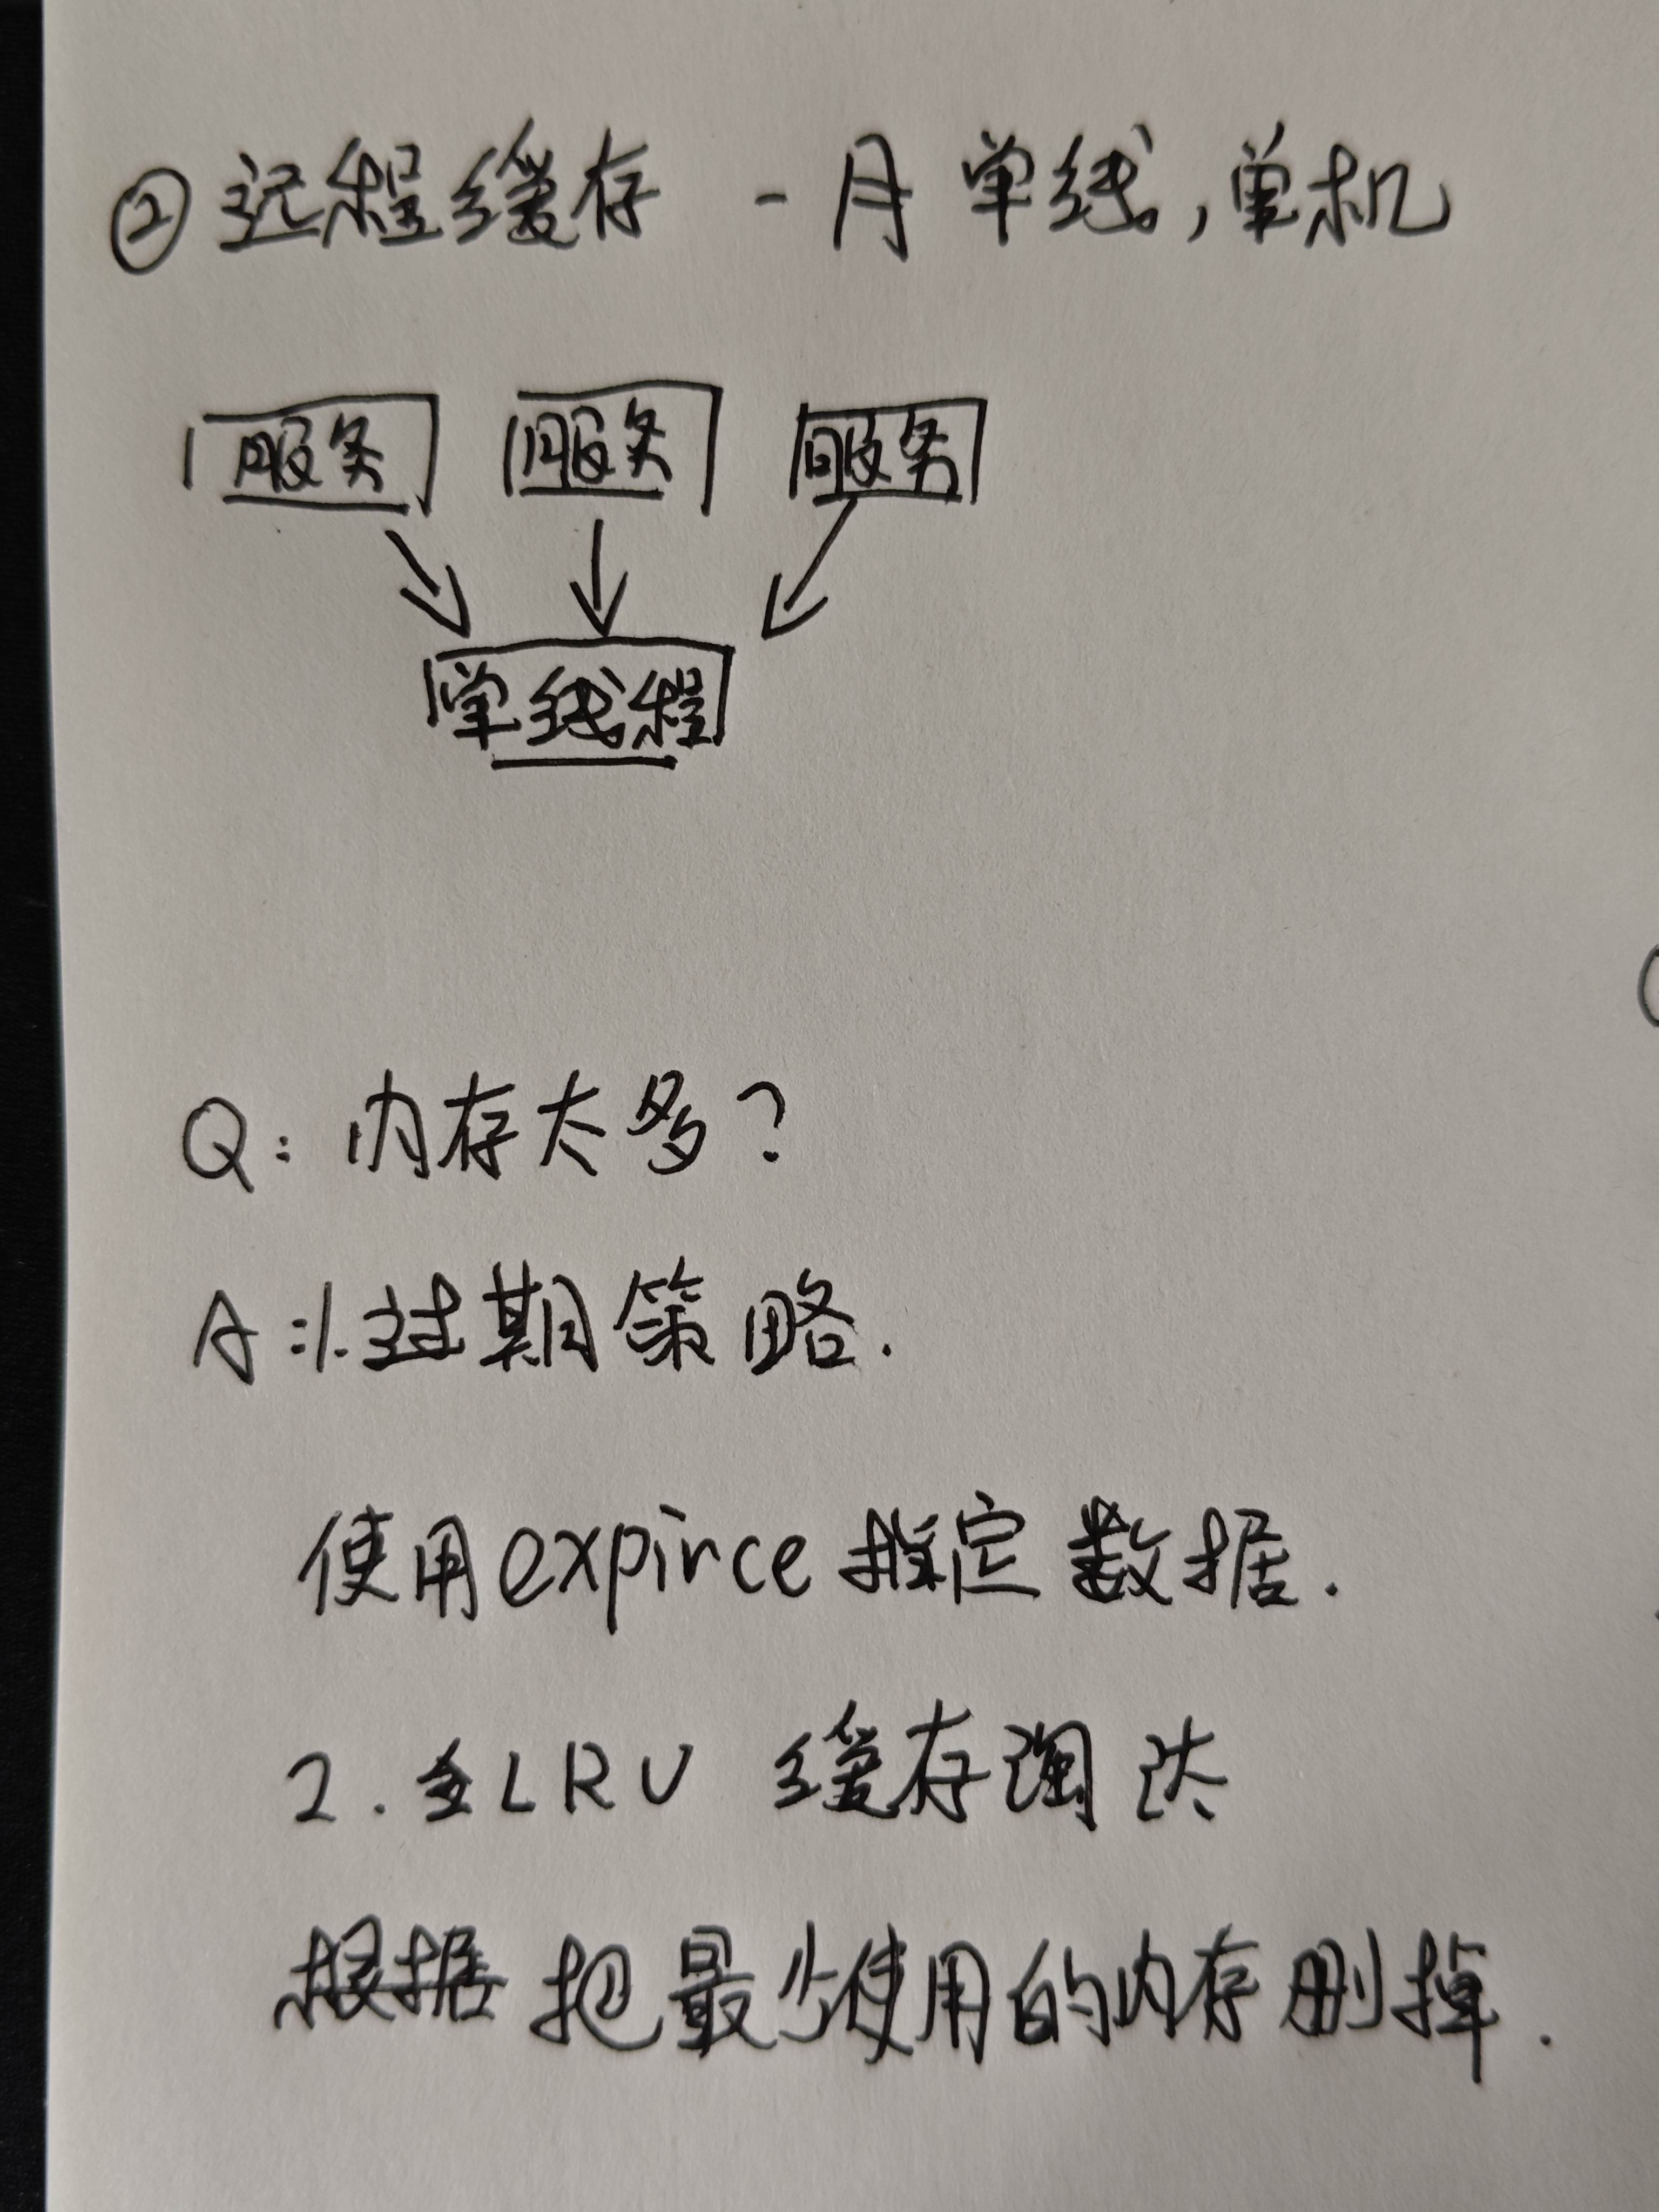 ② 远程缓存 - 月 单线, 单机
服务 服务 服务
单线程
Q: 内存太多?
A: 1. 过期策略.
使用expirce 指定数据.
2. LRU 缓存淘汰
根据 把最少使用的内存删掉.